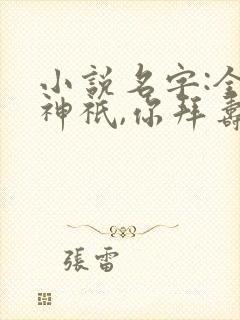 小說名字:全
神祇,你拜壽
張雷